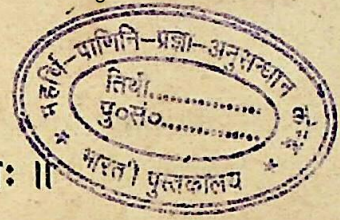 महर्षि-पाणिनि-प्रज्ञा-अनुसन्धान केन्द्र
तिथि..............
पु०सं०..............
* भारती पुस्तकालय *
ः ॥